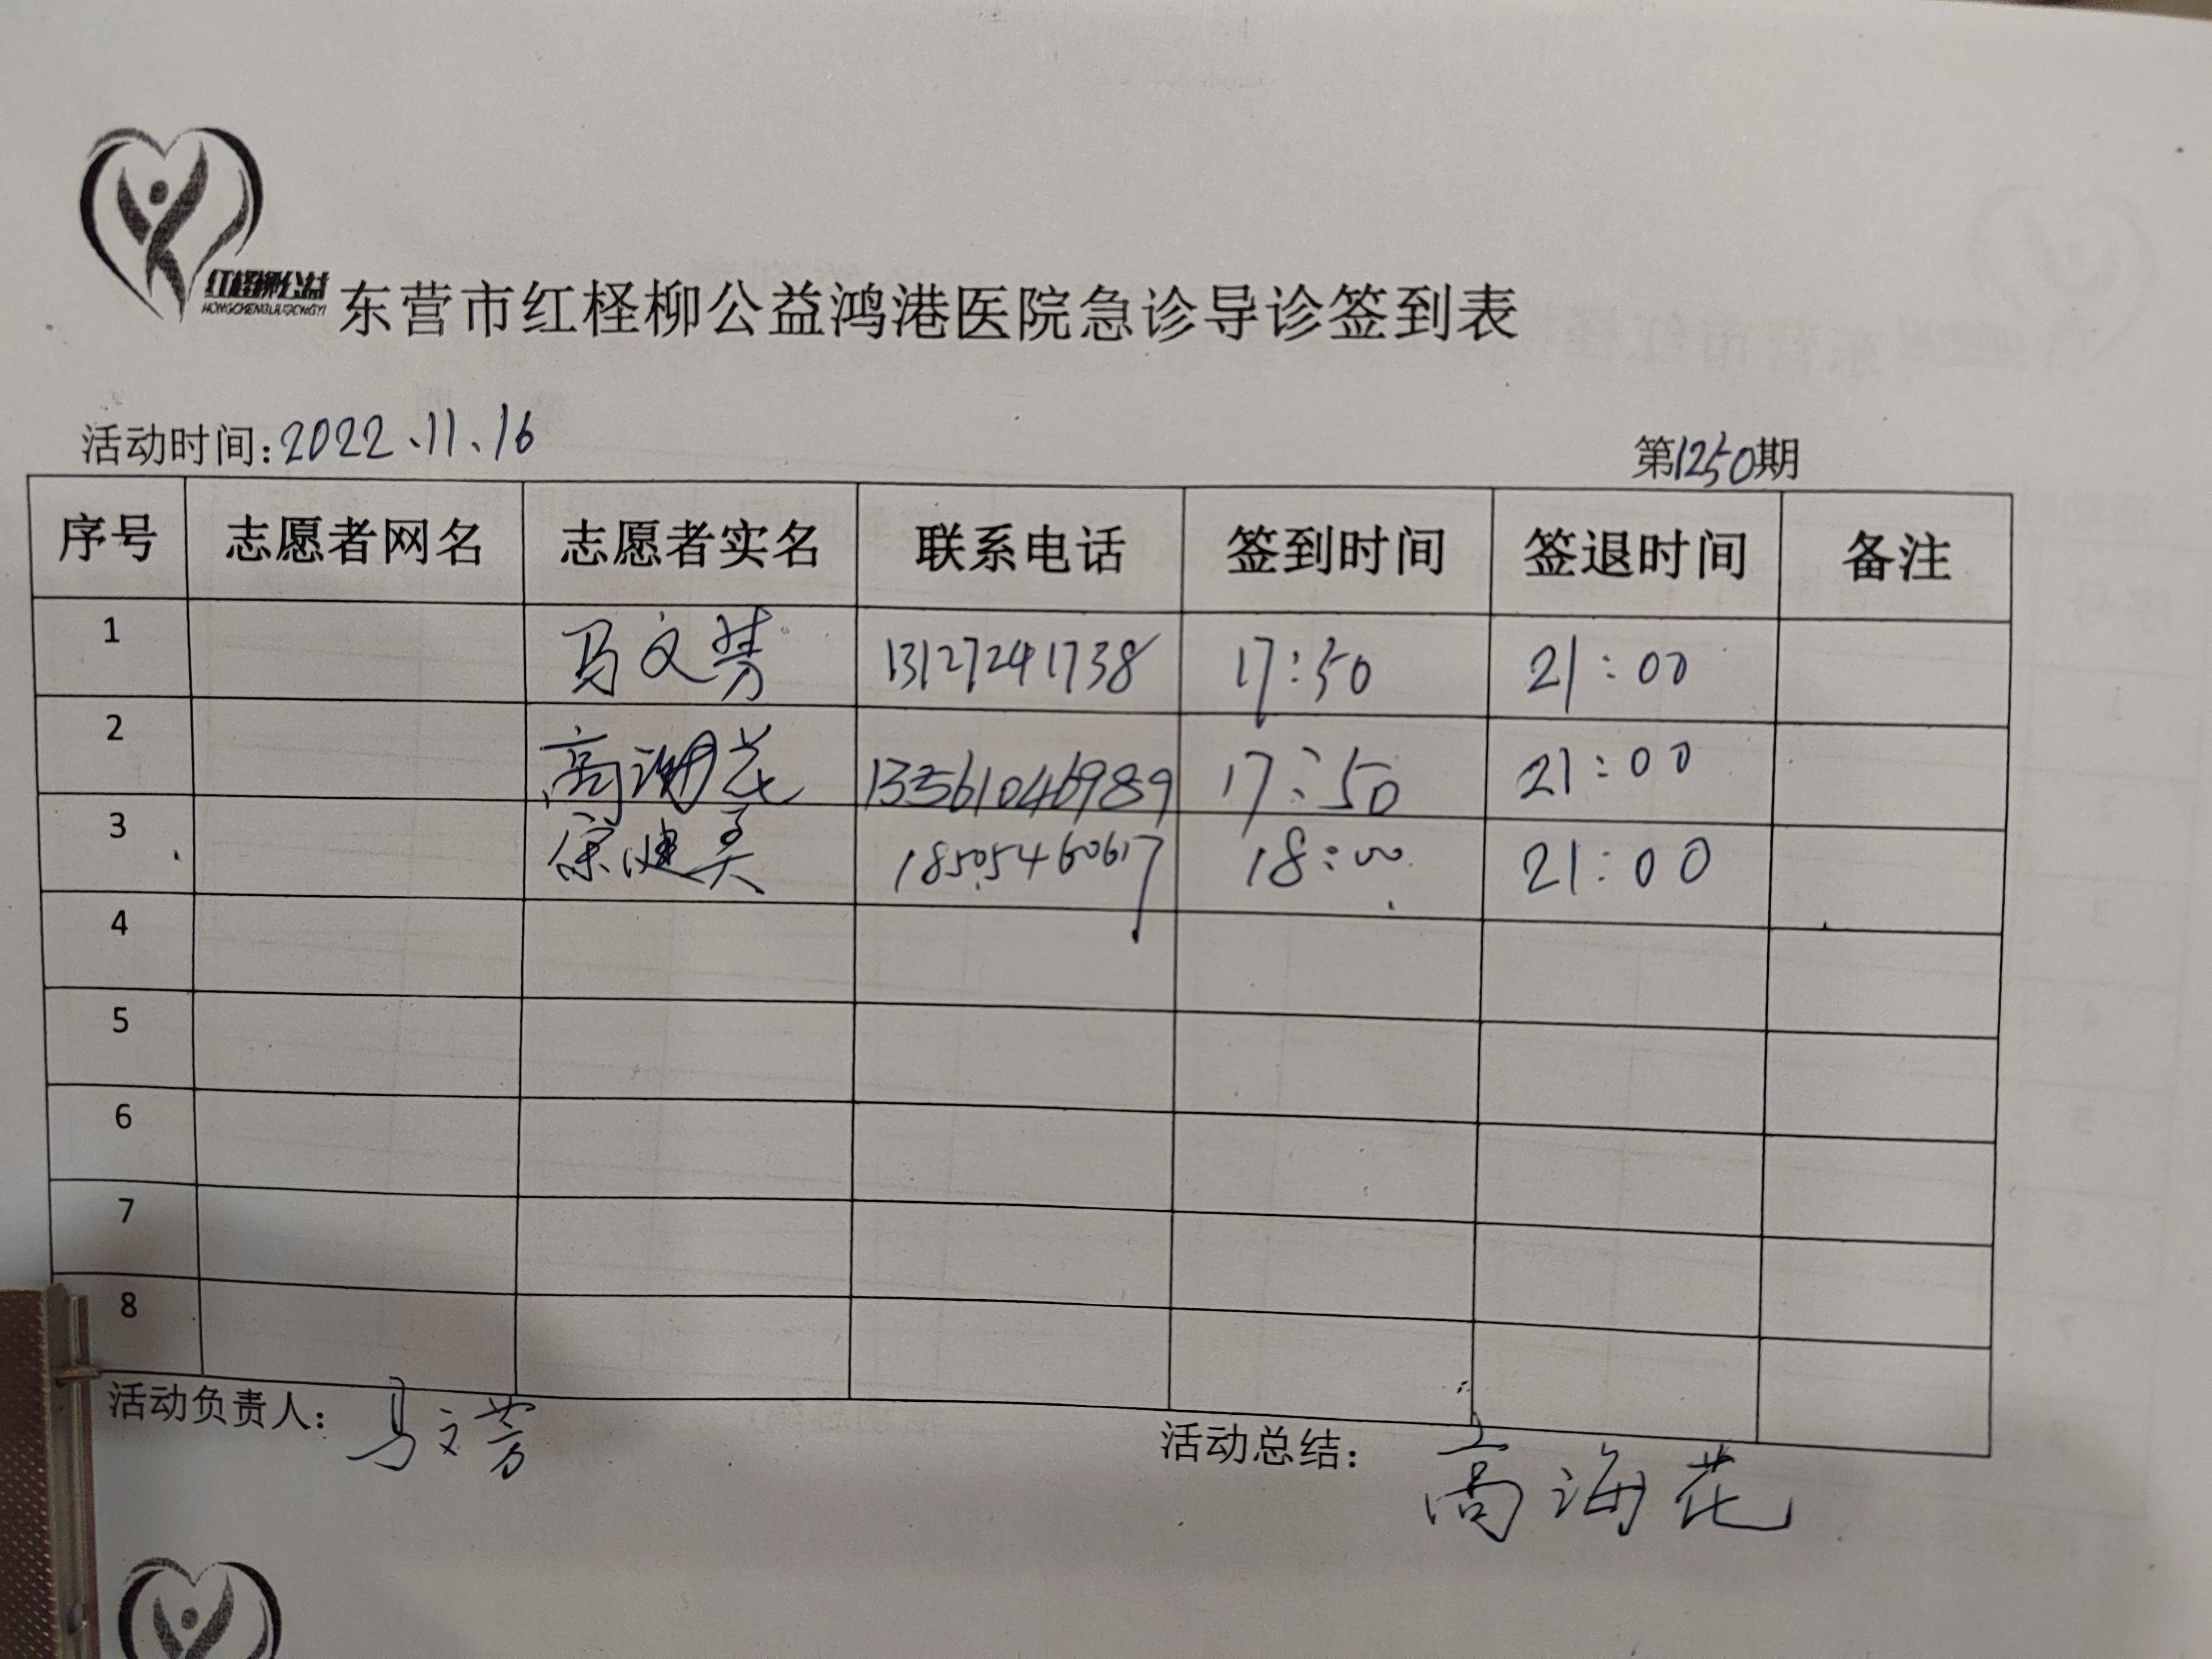 红柽柳公益
HONGCHENGLIUGONGYI
东营市红柽柳公益鸿港医院急诊导诊签到表
活动时间:2022.11.16 第1250期
序号 志愿者网名 志愿者实名 联系电话 签到时间 签退时间 备注
1 马文芳 13127241738 17:50 21:00
2 高海花 13361046989 17:50 21:00
3 18505460617 18:00 21:00
4
5
6
7
8
活动负责人: 马文芳 活动总结: 高海花